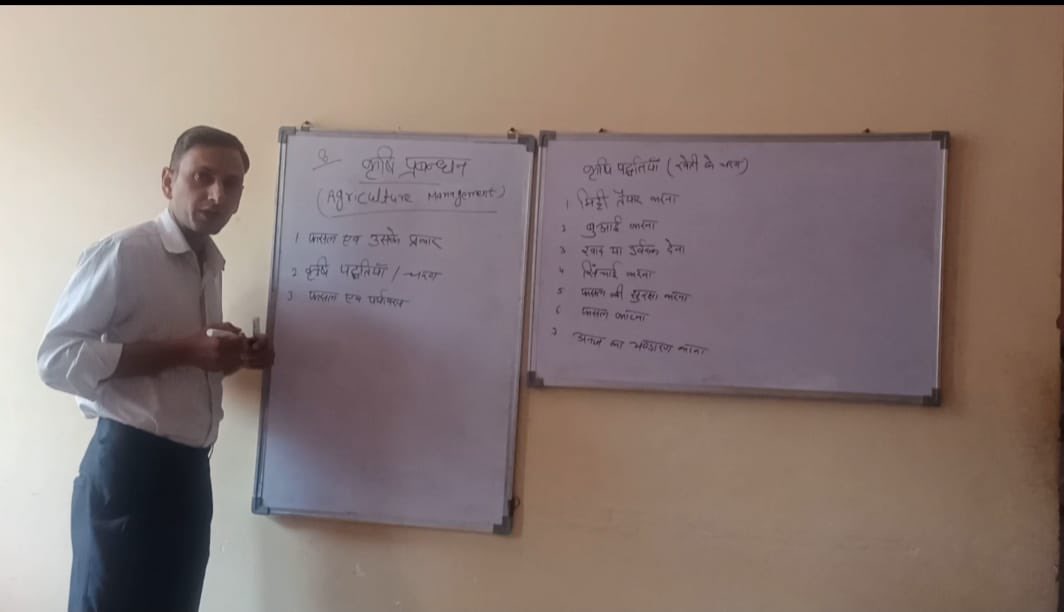 कृषि प्रबन्धन
(Agriculture Management)
1 फसल एवं उसके प्रकार
2 कृषि पद्धतियाँ / चरण
3 फसल एवं
कृषि पद्धतियाँ (खेती के चरण)
1 मिट्टी तैयार करना
2 बुआई करना
3 खाद या उर्वरक देना
4 सिंचाई करना
5 फसल की सुरक्षा करना
6 फसल काटना
7 अनाज का भण्डारण करना